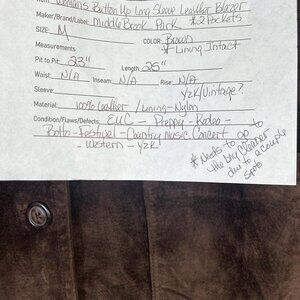 Item: Womens Button Up Long Sleeve Leather Blazer
Maker/Brand/Label: Middle Brook Park *2 Pockets
SIZE: M COLOR: Brown
Measurements * Lining Intact
Pit to Pit: 23" Length: 25"
Waist: N/A Inseam: N/A Rise: N/A
Sleeve: Y2K/Vintage?
Material: 100% Leather / Lining-Nylon
Condition/Flaws/Defects: EUC - Preppy - Rodeo -
Boho - Festival - Country Music Concert
- Western - Y2K
* Needs to go to
the Dry Cleaner
due to a couple
spots